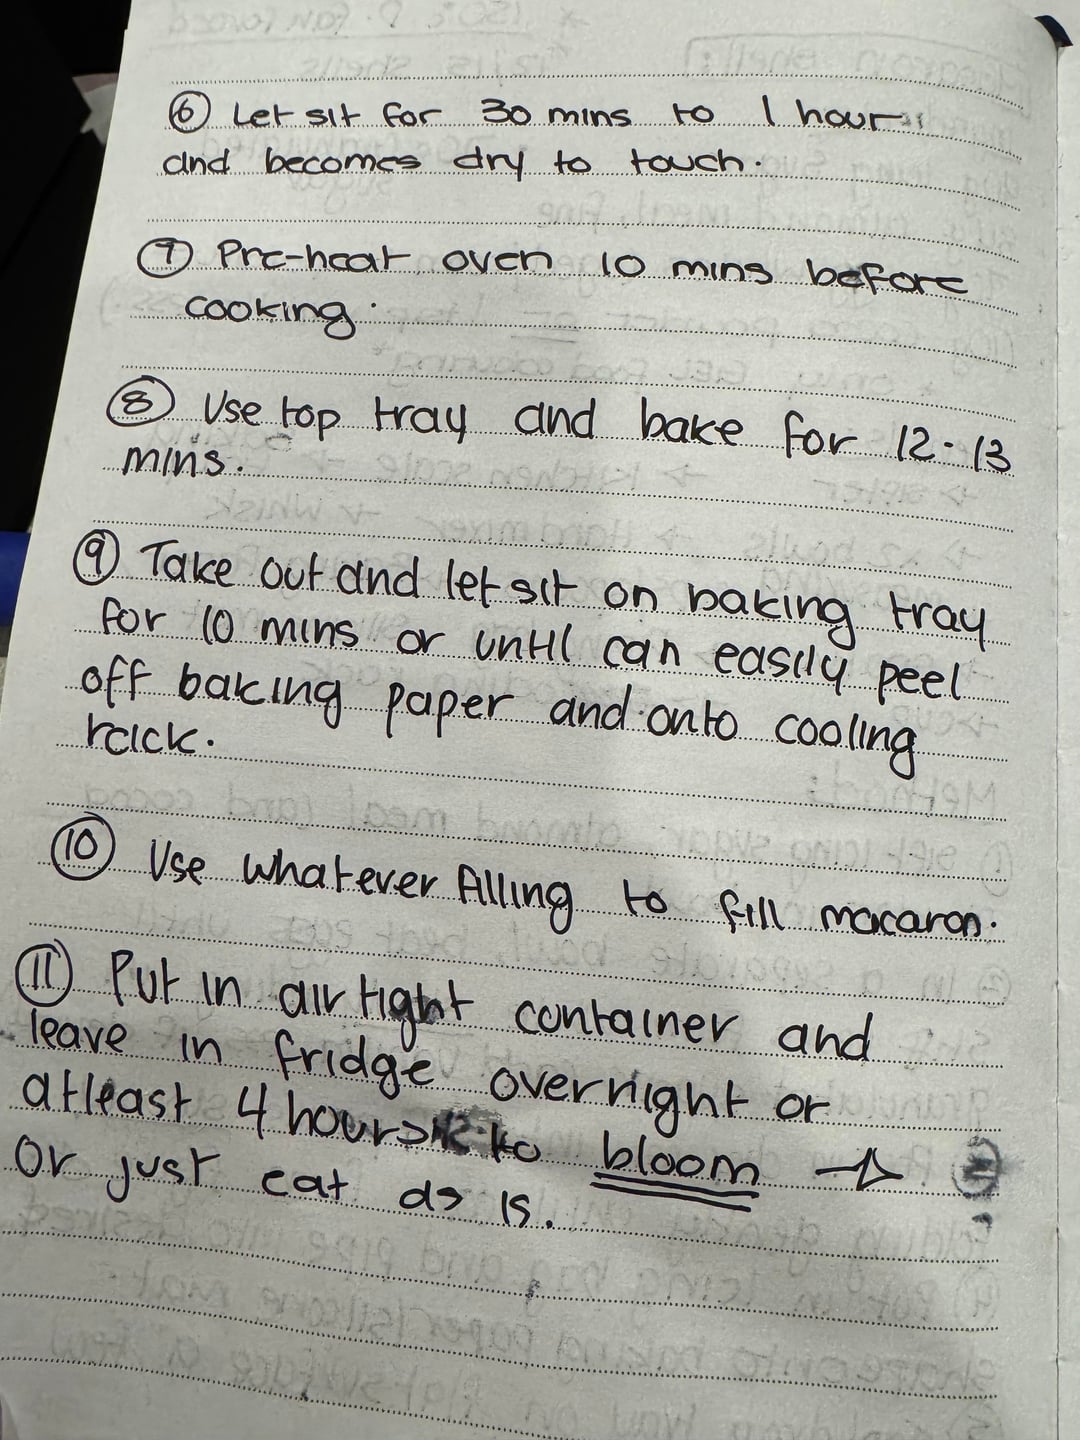 ⑥ Let sit for 30 mins to 1 hour
and becomes dry to touch.
⑦ Pre-heat oven 10 mins before
cooking.
⑧ Use top tray and bake for 12-13
mins.
⑨ Take out and let sit on baking tray
for 10 mins or until can easily peel
off baking paper and onto cooling
rack.
⑩ Use whatever filling to fill macaron.
⑪ Put in air tight container and
leave in fridge overnight or
atleast 4 hours to bloom →
or just eat as is.